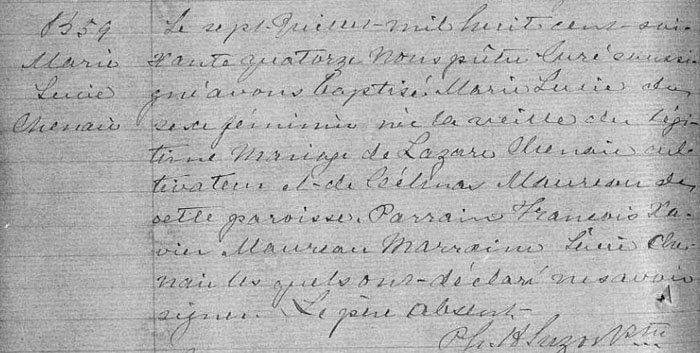 B59
Marie
Lucie
Chenaie
Le sept Juillet mil huit cent soi-
xante quatorze Nous prêtre Curé soussi-
gné avons baptisé Marie Lucie du
sexe féminin née la veille du légi-
time Mariage de Lazare Chenaie cul-
tivateur et de Célinas Maureau de
cette paroisse. Parrain François Xa-
vier Maureau Marraine Lucie Che-
naie les quels ont déclaré ne savoir
signer. Le père absent
Ph. H. Suzor Ptre